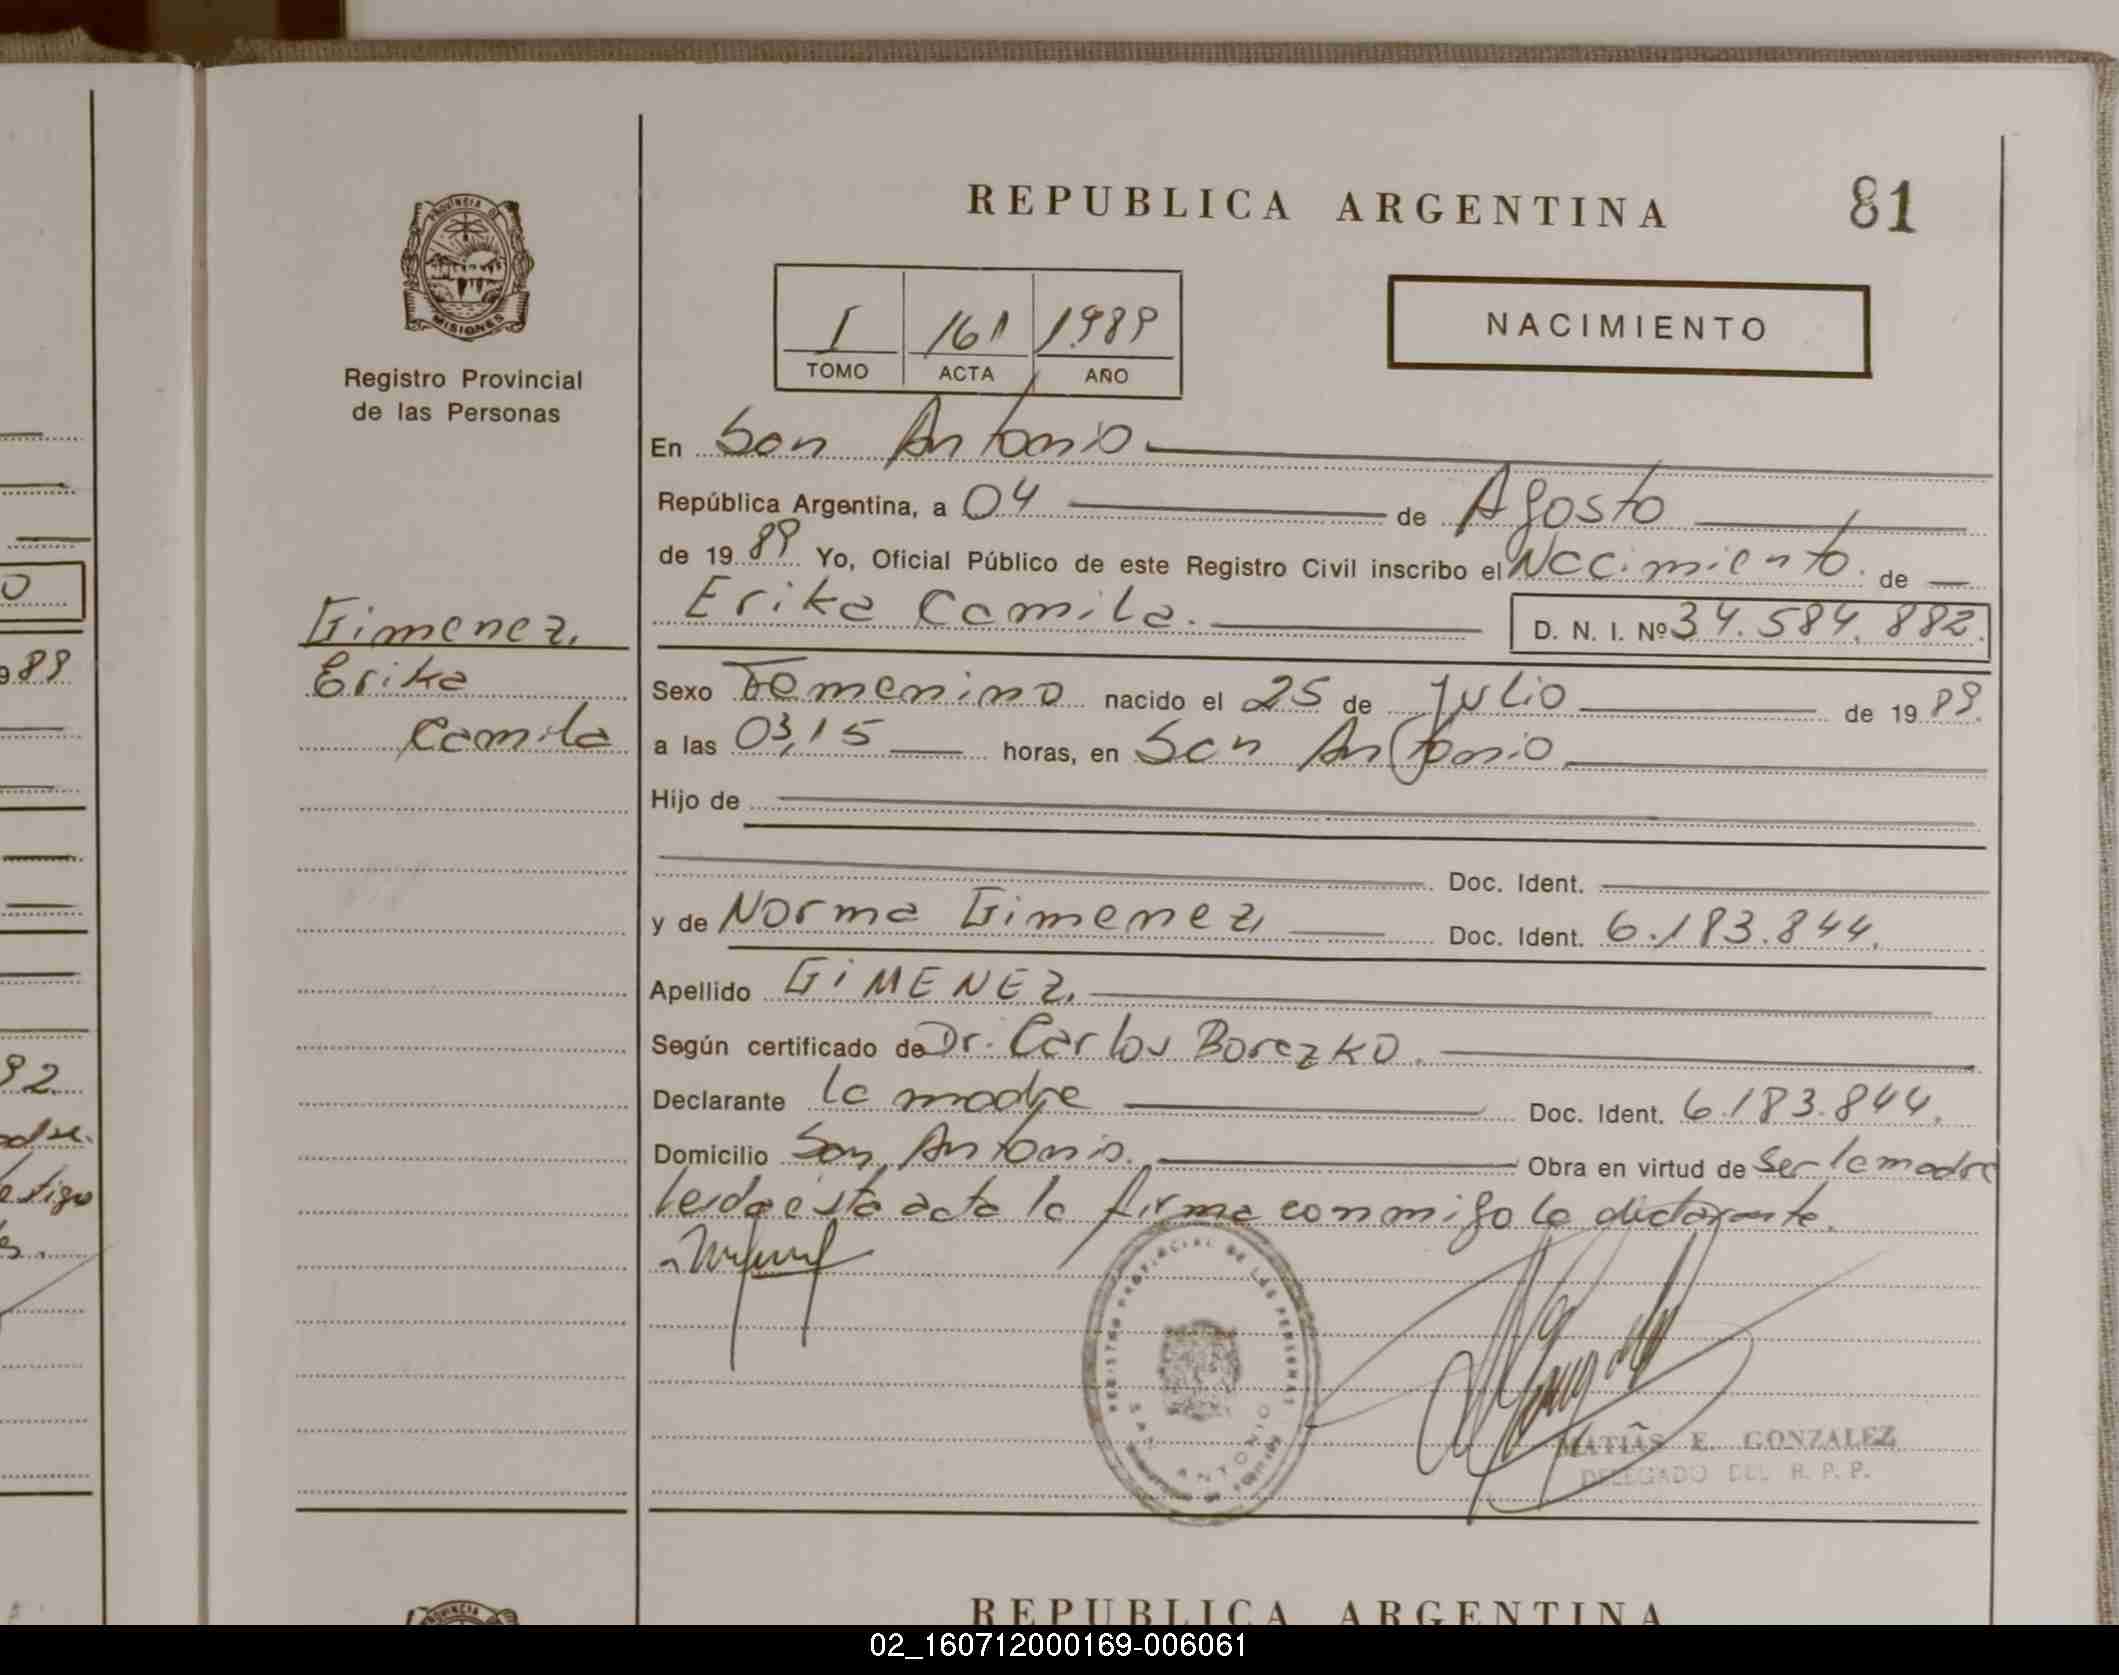 REPUBLICA ARGENTINA
81
PROVINCIA DE
MISIONES
Registro Provincial
de las Personas
I 161 1989
TOMO ACTA AÑO
NACIMIENTO
En San Antonio
República Argentina, a 04 de Agosto
de 1989 Yo, Oficial Público de este Registro Civil inscribo el Nacimiento. de
Erika Camila. D. N. I. Nº 34.584.882.
Gimenez,
Erika
Camila
Sexo Femenino nacido el 25 de Julio de 1989.
a las 03,15 horas, en San Antonio
Hijo de
Doc. Ident.
y de Norma Gimenez, Doc. Ident. 6.183.844.
Apellido GiMENEZ.
Según certificado de Dr. Carlos Borezko.
Declarante la madre Doc. Ident. 6.183.844.
Domicilio San Antonio. Obra en virtud de Ser la madre
leida ésta acta la firma conmigo la
REGISTRO PROVINCIAL DE LAS PERSONAS
SAN ANTONIO
MATIAS E. GONZALEZ
DELEGADO DEL R. P. P.
0
989
92
estigo
PROVINCIA
REPUBLICA ARGENTINA
02_160712000169-006061